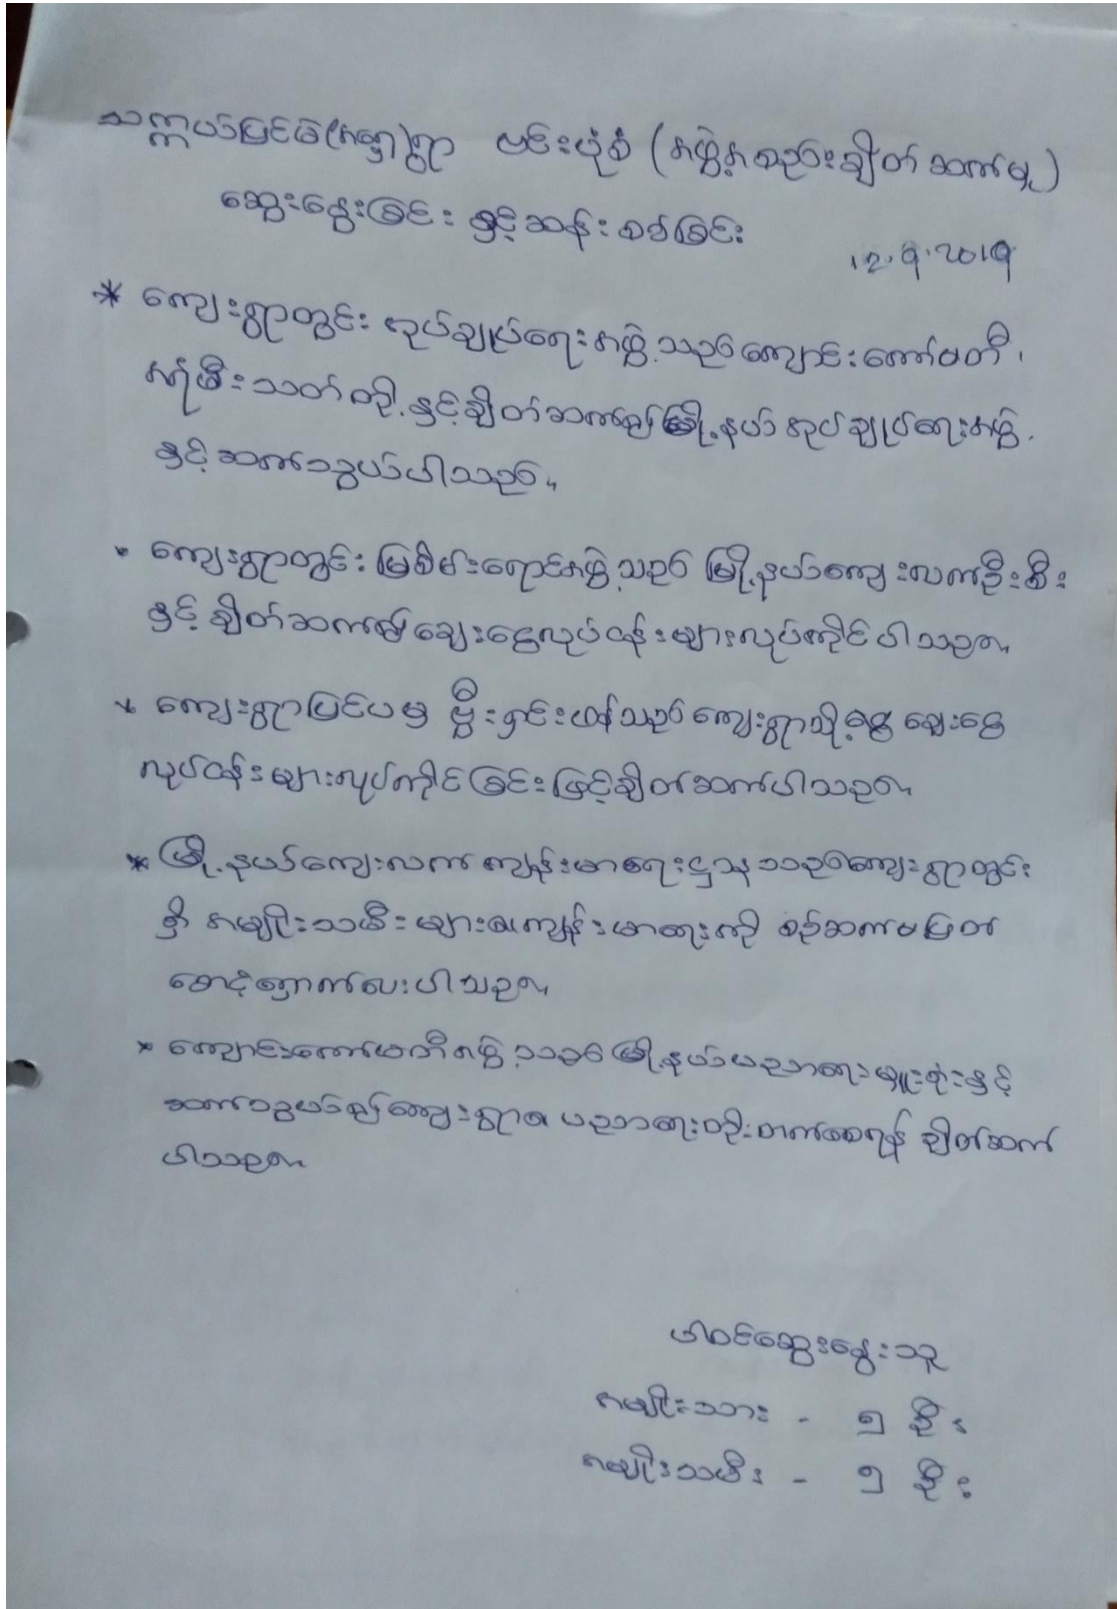 သက္ကယ်ပြင်မ(အရှေ့)ရွာ ဗင်းပုံစံ (အဖွဲ့အစည်းချိတ်ဆက်မှု)
ဆွေးနွေးခြင်း နှင့်ဆန်းစစ်ခြင်း
12.9.2019
* ကျေးရွာတွင်း အုပ်ချုပ်ရေးအဖွဲ့သည် ကျောင်းကော်မတီ၊
အရံမီးသတ်တို့နှင့်ချိတ်ဆက်၍ မြို့နယ်အုပ်ချုပ်ရေးအဖွဲ့
နှင့်ဆက်သွယ်ပါသည်။
* ကျေးရွာတွင်း မြစိမ်းရောင်အဖွဲ့သည် မြို့နယ်ကျေးလက်ဦးစီး
နှင့်ချိတ်ဆက်၍ ချေးငွေလုပ်ငန်းများလုပ်ကိုင်ပါသည်။
* ကျေးရွာပြင်ပမှ မွှီးရှင်းဟန်သည် ကျေးရွာသို့ငွေချေးငွေ
လုပ်ငန်းများလုပ်ကိုင်ခြင်းဖြင့်ချိတ်ဆက်ပါသည်။
* မြို့နယ်ကျေးလက်ကျန်းမာရေးဌာနသည်ကျေးရွာတွင်း
ရှိ အမျိုးသမီးများ၏ကျန်းမာရေးကို စဉ်ဆက်မပြတ်
စောင့်ရှောက်ပေးပါသည်။
* ကျောင်းကော်မတီအဖွဲ့သည် မြို့နယ်ပညာရေးမှူးရုံးနှင့်
ဆက်သွယ်၍ကျေးရွာ၏ ပညာရေးတိုးတက်စေရန် ချိတ်ဆက်
ပါသည်။
ပါဝင်ဆွေးနွေးသူ
အမျိုးသား - ၅ ဦး
အမျိုးသမီး - ၅ ဦး